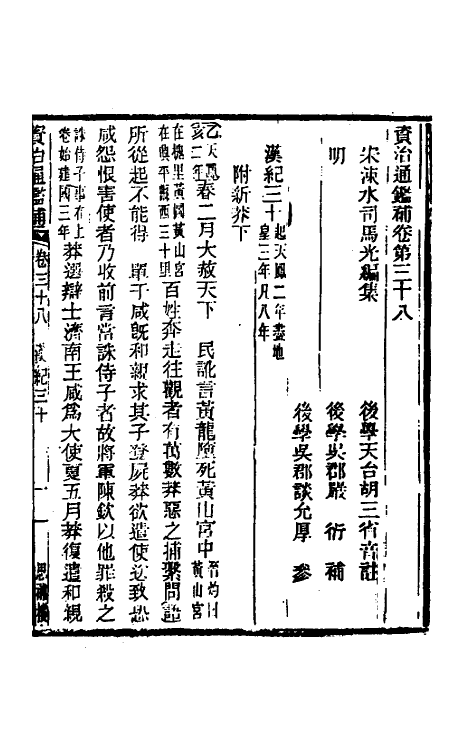 資治通鑑補卷第三十八
宋涑水司馬光編集
後學天台胡三省音註
明
後學吳郡嚴衍補
後學吳郡談允厚參
漢紀三十起天鳳二年盡地皇三年凡八年
附新莽下
乙亥天鳳二年春二月大赦天下 民訛言黃龍墮死黃山宮中晉灼曰黃山宮
在槐里黃圖黃山宮在興平縣西三十里百姓奔走往觀者有萬數莽惡之捕繫問語
所從起不能得 單于咸旣和親求其子登屍莽欲遣使送致恐
咸怨恨害使者乃收前言當誅侍子者故將軍陳欽以他罪殺之
誅侍子事在上卷始建國三年莽選辯士濟南王咸爲大使夏五月莽復遣和親
資治通鑑補 卷三十八 漢紀三十 一 思補樓